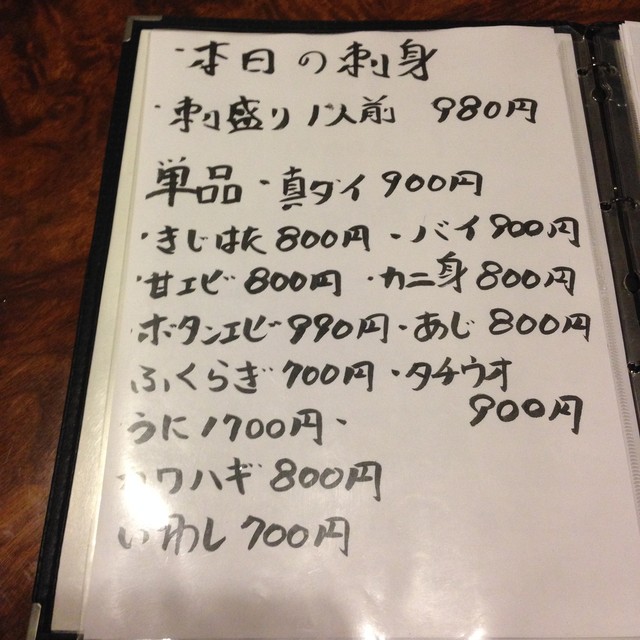 ・本日の刺身
・刺盛り1人前 980円
単品・真ダイ 900円
・きじはた 800円 ・バイ 900円
・甘エビ 800円 ・カニ身 800円
・ボタンエビ 990円・あじ 800円
ふくらぎ 700円・タチウオ
900円
うに 1700円・
カワハギ 800円
いわし 700円